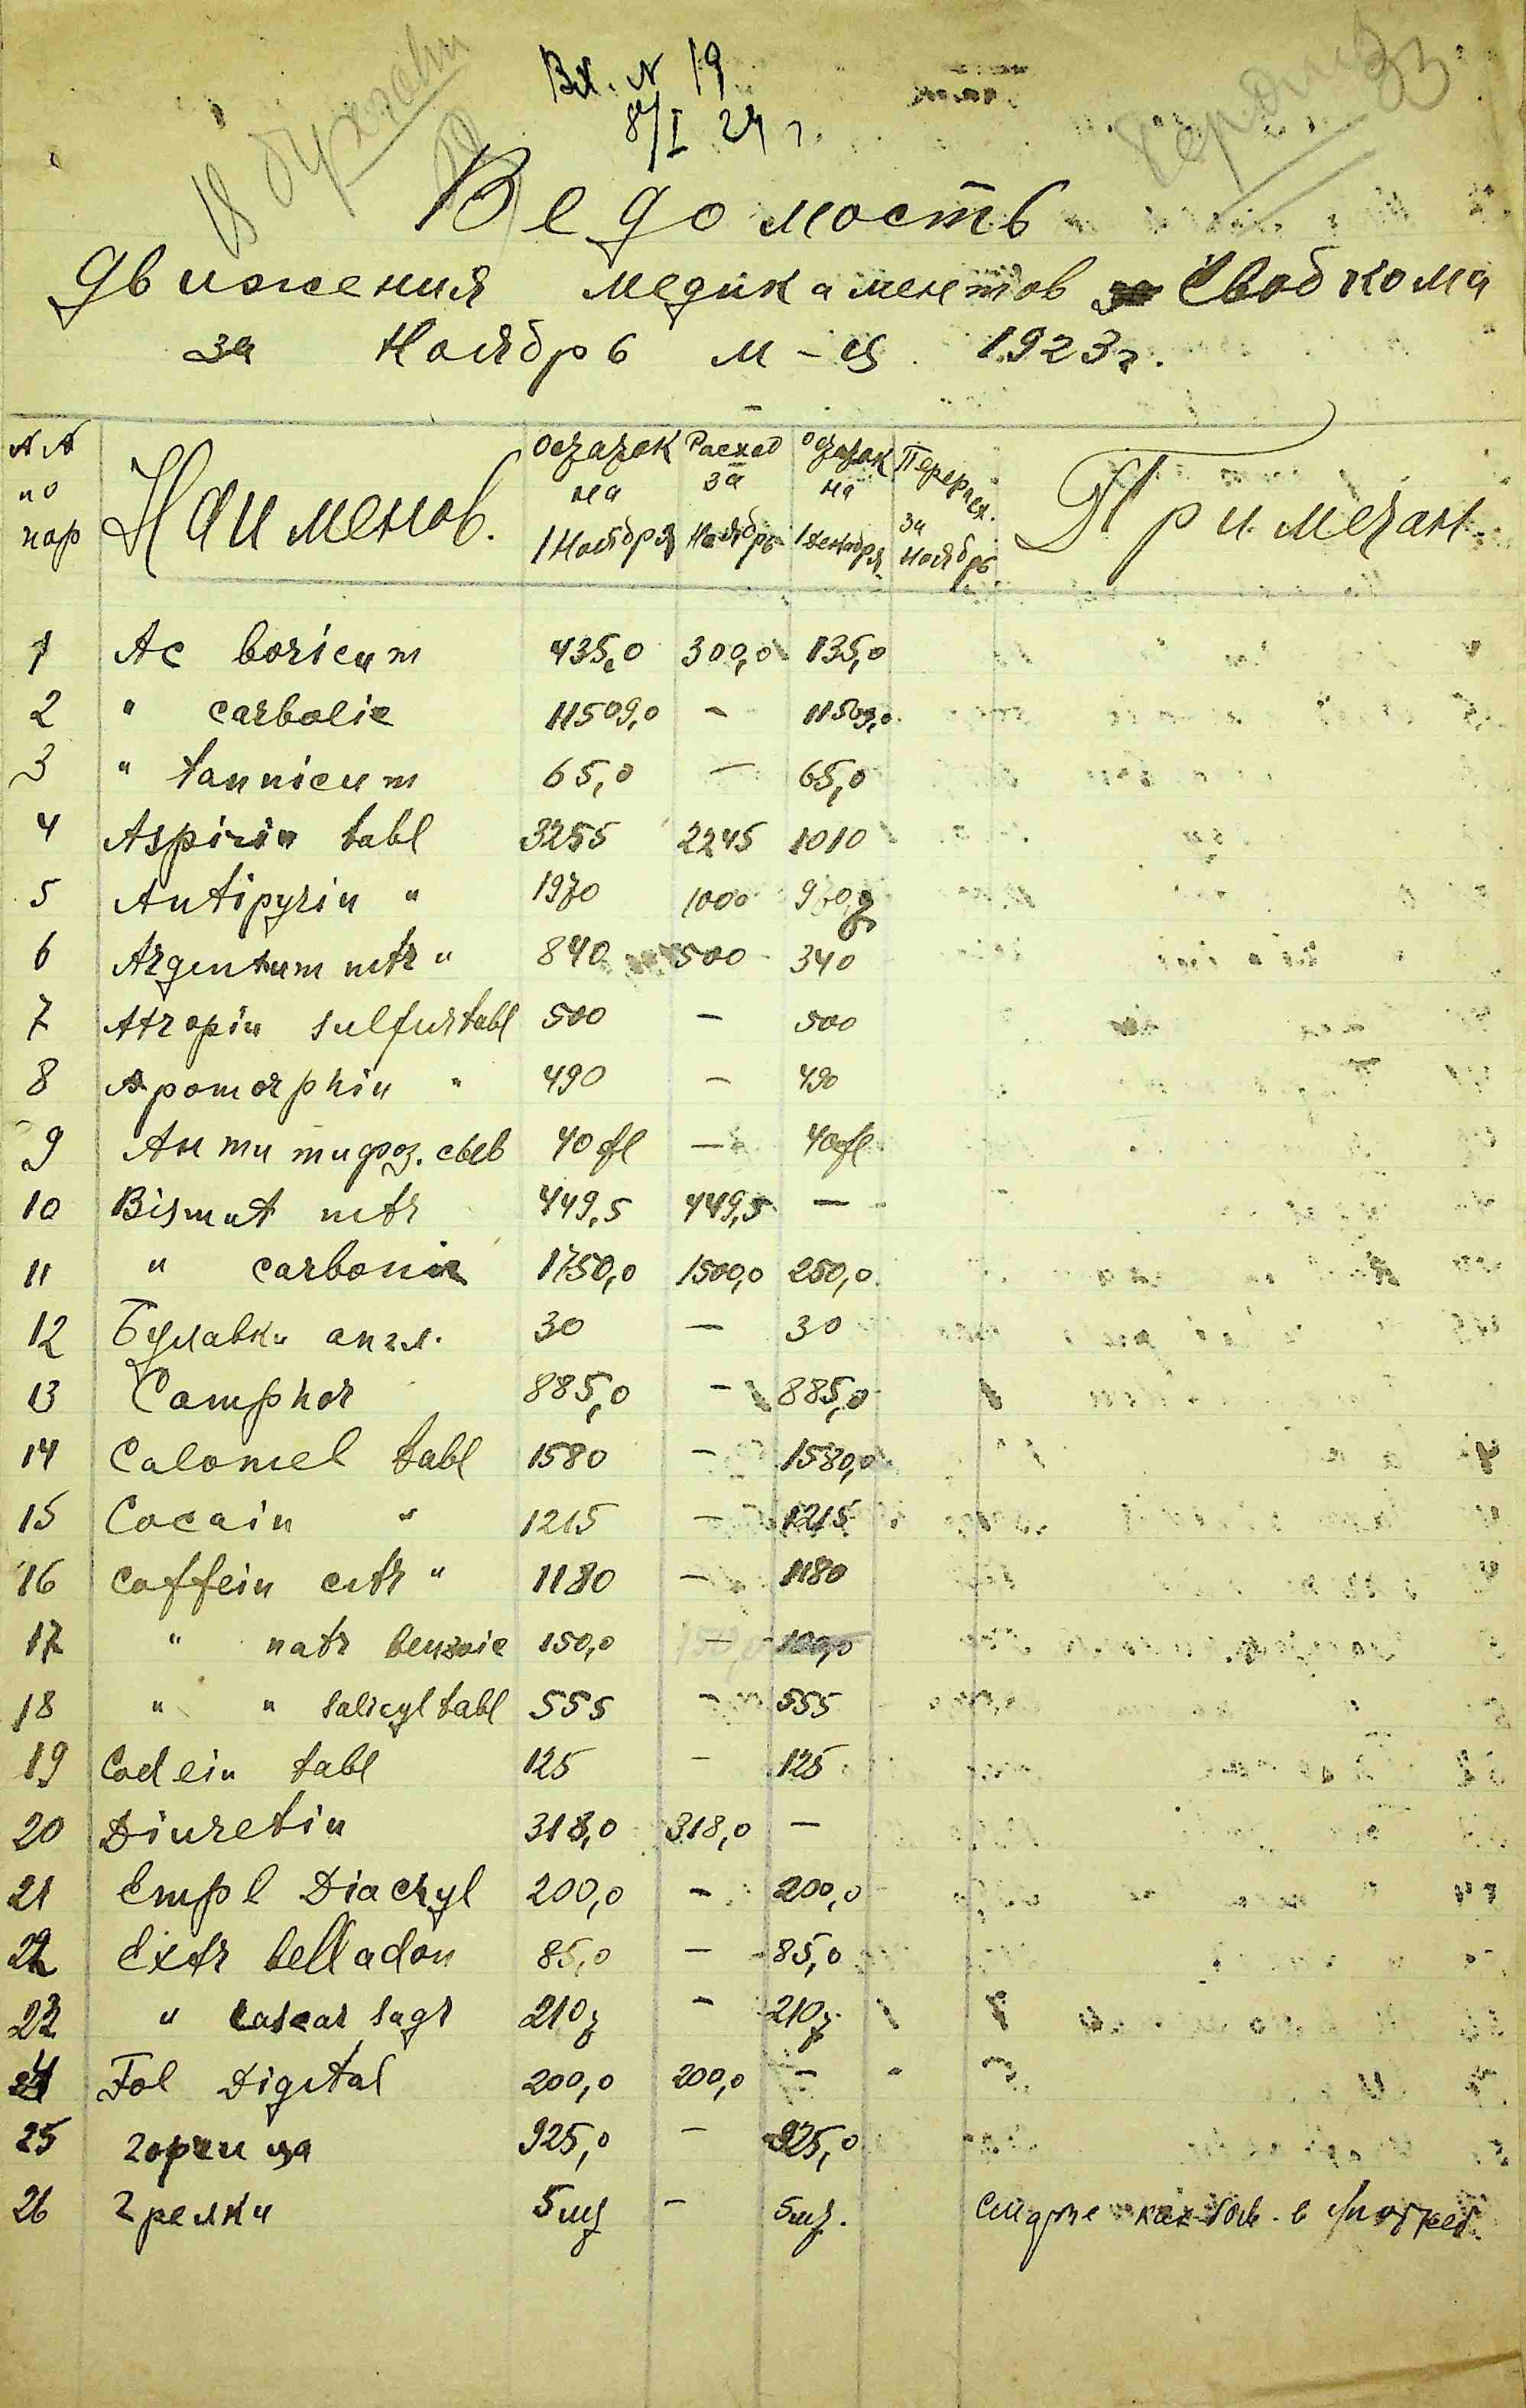 Вх. N 19
8/I 24 г.
В бухгалт
33
Ведомость
движения медикаментов Свобкома
за Ноябрь м-ц 1923 г.
NN по пор Наименов. Остаток на 1 Ноября Расход за Ноябрь Остаток на 1 декабря за Ноябрь Примечан.
1 Ac boricum 435,0 300,0 135,0
2 " carbolic 11509,0 — 11509,0
3 " tannicum 65,0 — 65,0
4 Aspirin tabl 3255 2245 1010
5 Antipyrin " 1970 1000 970
6 Argentum nitr " 840 500 340
7 Atropin sulfur tabl 500 — 500
8 Apomorphin " 490 — 490
9 Анти тифоз. сыв 40 fl — 40 fl
10 Bismut nitr 449,5 449,5 —
11 " carbonic 1750,0 1500,0 250,0
12 Булавки англ. 30 — 30
13 Camphor 885,0 — 885,0
14 Calomel tabl 1580 — 1580,0
15 Cocain " 1215 — 1215
16 Coffein citr " 1180 — 1180
17 " natr benzoic 150,0 —
18 " " salicyl tabl 555 — 555
19 Codein tabl 125 — 125
20 Diuretin 318,0 318,0 —
21 Empl Diachyl 200,0 — 200,0
22 Extr belladon 85,0 — 85,0
23 " cascar sagr 210 — 210
24 Fol Digital 200,0 200,0 —
25 горчица 925,0 — 925,0
26 грелки 5 шт — 5 шт.